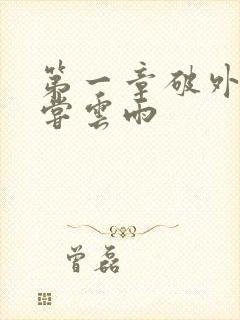 第一章破外
尝雲雨
曾磊